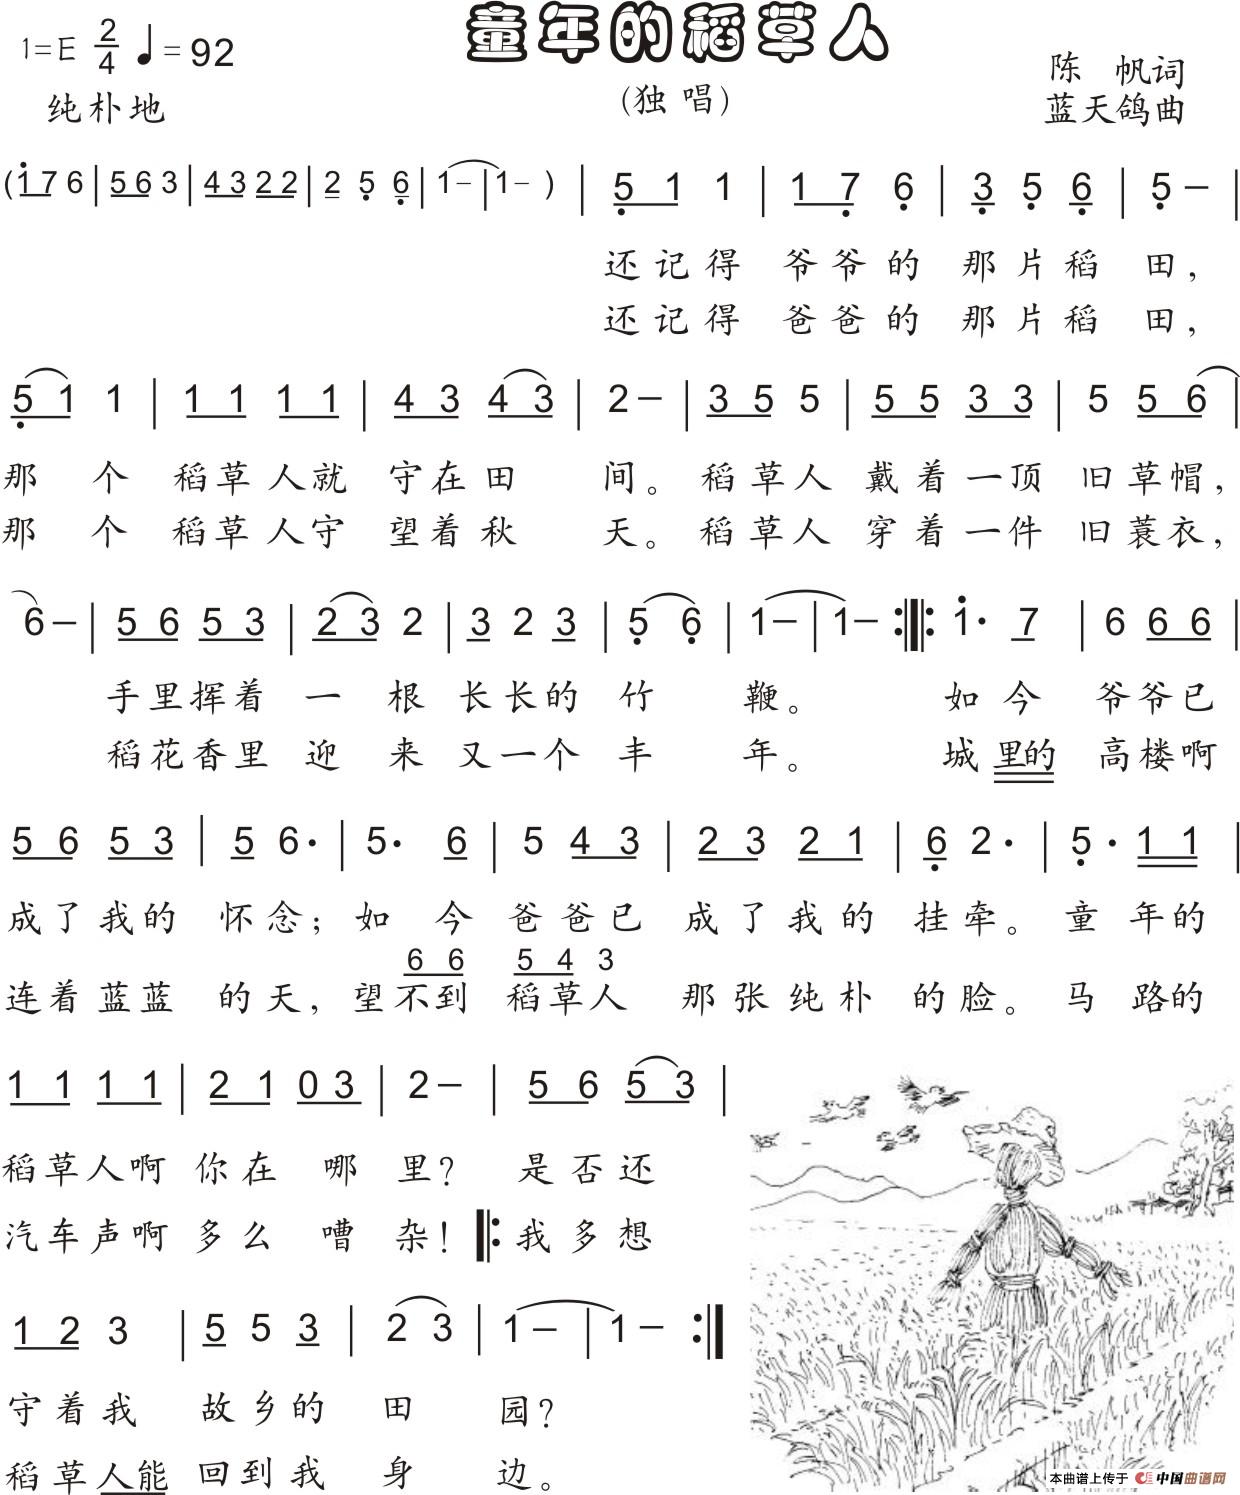 童年的稻草人
1=E 2/4 ♩=92
纯朴地
(独 唱)
陈 帆词
蓝天鸽曲
(1 7 6 | 5 6 3 | 4 3 2 2 | 2 5 6 | 1 – | 1 – ) | 5 1 1 | 1 7 6 | 3 5 6 | 5 – |
还记得 爷爷的 那片稻 田，
还记得 爸爸的 那片稻 田，
5 1 1 | 1 1 1 1 | 4 3 4 3 | 2 – | 3 5 5 | 5 5 3 3 | 5 5 6 |
那 个 稻草人就 守在田 间。 稻草人 戴着一顶 旧草帽，
那 个 稻草人守 望着秋 天。 稻草人 穿着一件 旧蓑衣，
6 – | 5 6 5 3 | 2 3 2 | 3 2 3 | 5 6 | 1 – | 1 – :‖: 1· 7 | 6 6 6 |
手里挥着 一 根 长长的 竹 鞭。 如今 爷爷已
稻花香里 迎 来 又一个 丰 年。 城里的 高楼啊
5 6 5 3 | 5 6· | 5· 6 | 5 4 3 | 2 3 2 1 | 6 2· | 5· 1 1 |
成了我的 怀念； 如 今 爸爸已 成了我的 挂牵。 童 年的
6 6 5 4 3
连着蓝蓝 的天， 望不到 稻草人 那张纯朴 的脸。 马 路的
1 1 1 1 | 2 1 0 3 | 2 – | 5 6 5 3 |
稻草人啊 你在 哪 里？ 是否还
汽车声啊 多么 嘈 杂！ ‖: 我多想
1 2 3 | 5 5 3 | 2 3 | 1 – | 1 – :‖
守着我 故乡的 田 园？
稻草人能 回到我 身 边。
本曲谱上传于 中国曲谱网